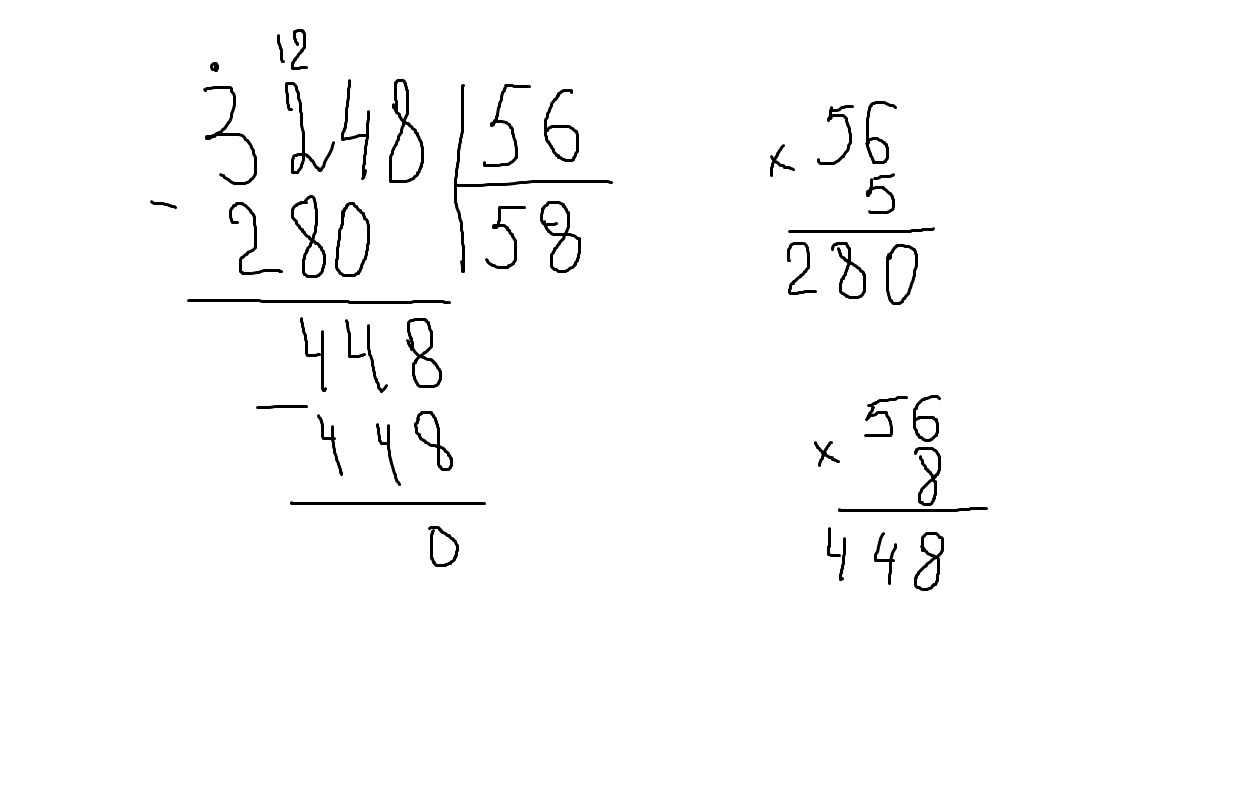 12
3248 56
- 280 58
448
- 448
0
56
x 5
280
56
x 8
448